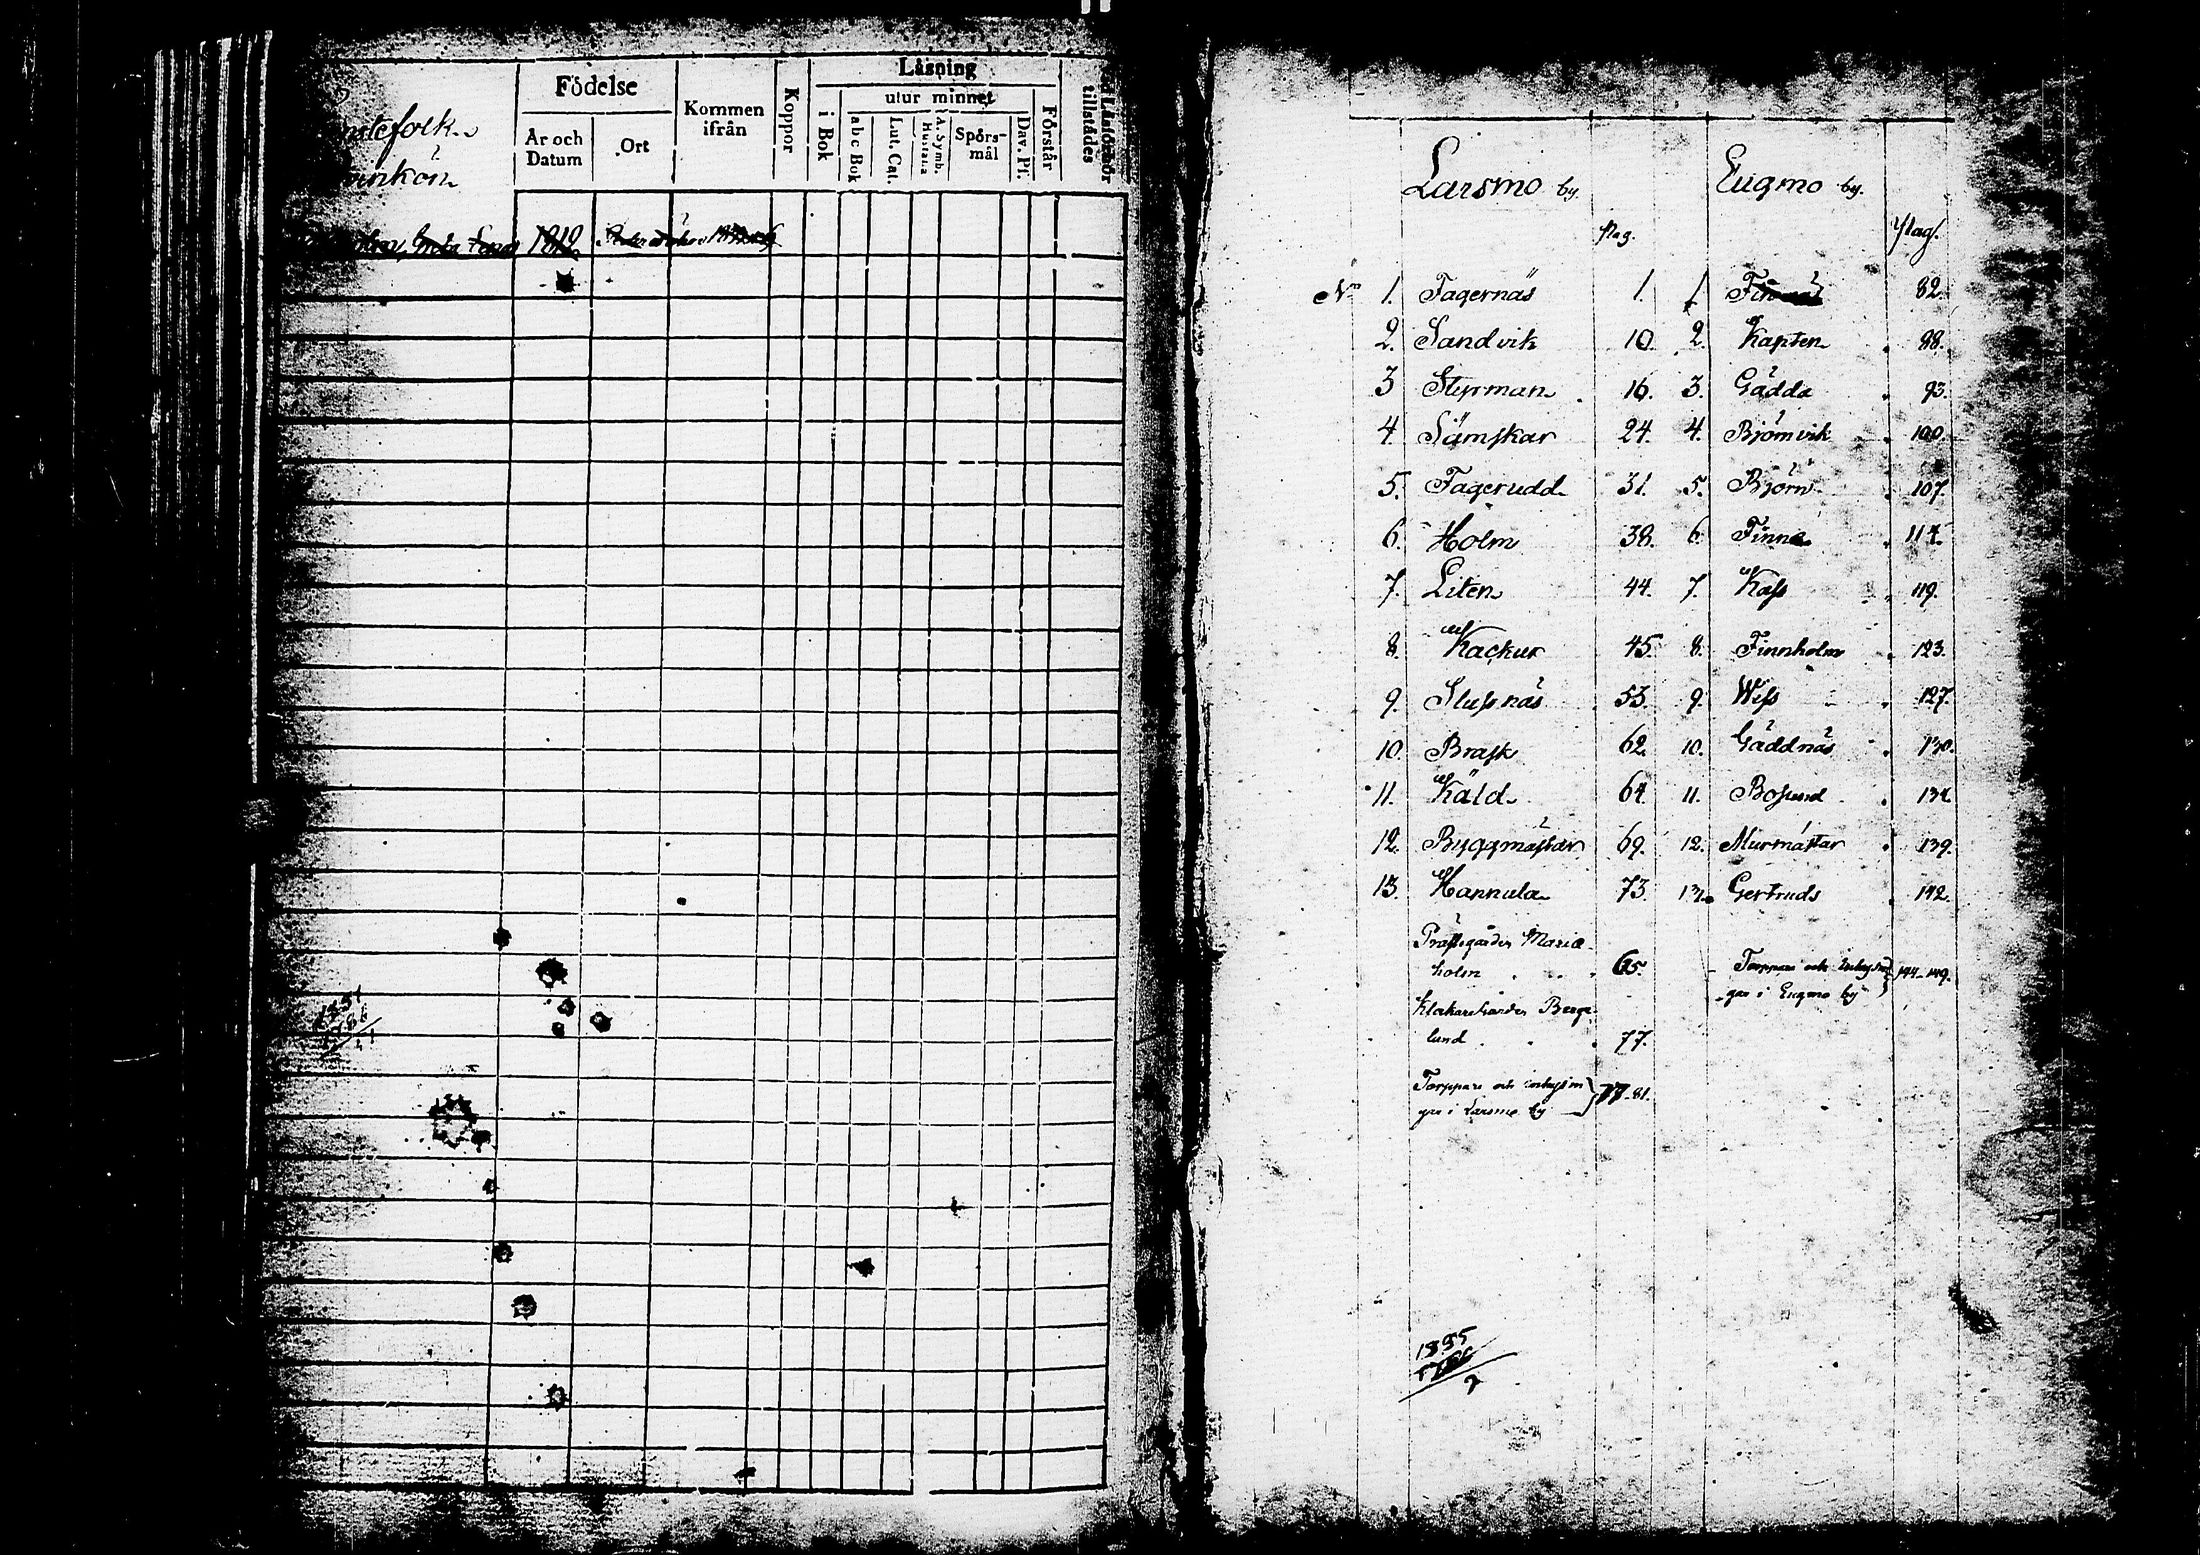 Födelse
Kommen ifrån
Koppor
Läsning
i Bok
utur minnet
Förstår
tillstädes
År och Datum
Ort
abc Bok
Lut. Cat.
A. Symb. Hustafla
Spörsmål
Dav. Ps.
qvinkön
1819
1851
Larsmo by. Eugmo by.
Pag. Pag.
No 1. Fagernäs 1. 1 82.
2. Sandvik 10 2. Kapten 88.
3 Styrman 16. 3. Gädda 93.
4. Sämskar 24. 4. Björnvik 100.
5. Fagerudd 31. 5. Björn 107.
6. Holm 38. 6. Finne 114.
7. Liten 44. 7. Kass 119.
8. Kackur 45. 8. Finnholm 123.
9. Slussnäs 53. 9. Wiss 127.
10. Brask 62 10. Gäddnäs 130.
11. Käld 64. 11. Bosund 134.
12. Byggmästar 69. 12. Murmästar 139.
13. Hannula 73. 13. Gertruds 142.
Prästegården Maria-
holm 65. Torppare och inhysin-
gar i Eugmo by 144-149.
Klockarebordet Berg-
lund 77.
Torppare och inhysin
gar i Larsmo by 77-81.
1855
2